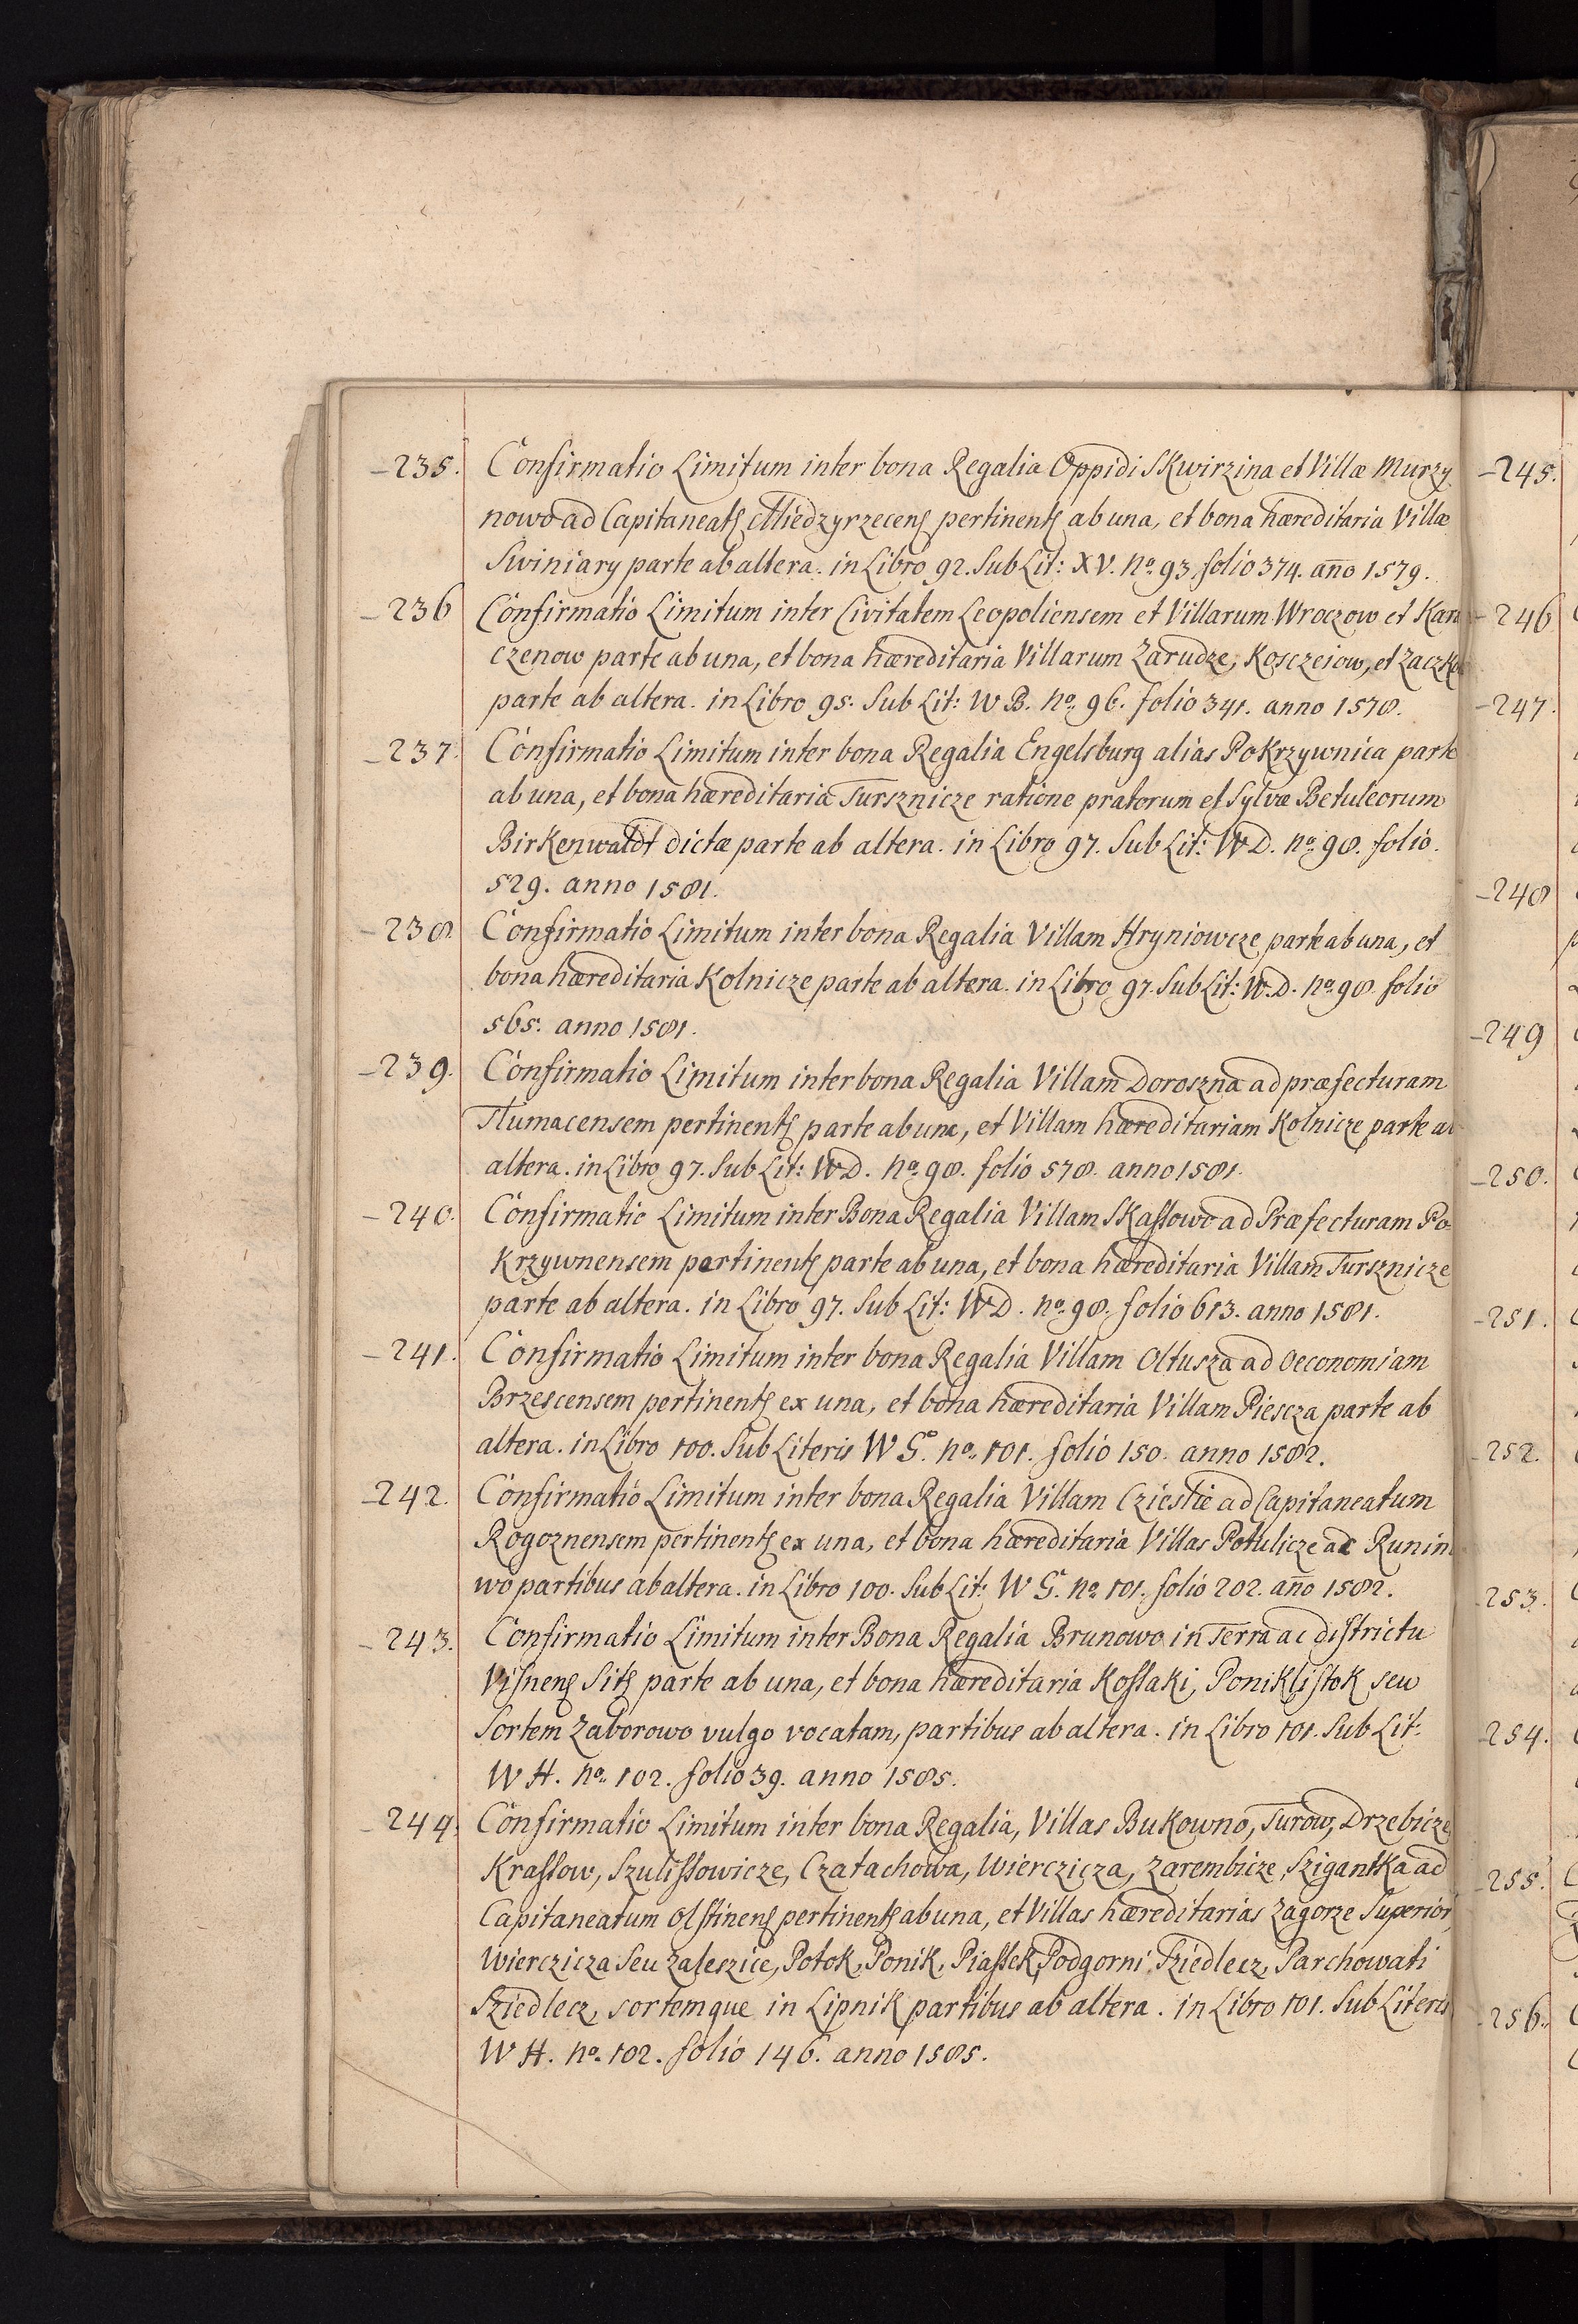 235. Confirmatio Limitum inter bona Regalia Oppidi Skwirzina et Villæ Murzy
nowo ad Capitaneatꝭ Miedzyrzecenꝭ pertinentꝭ ab una, et bona hæreditaria Villæ
Swiniary parte ab altera. in Libro 92. Sub Lit: XV. No. 93. folio 374. año 1579.
236 Confirmatio Limitum inter Civitatem Leopoliensem et Villarum Wroczow et
czenow parte ab una, et bona hæreditaria Villarum Zarudze, Kosczeiow, et
parte ab altera. in Libro 95. Sub Lit: WB. No. 96. folio 341. anno 1578.
237. Confirmatio Limitum inter bona Regalia Engelsburg alias Pokrzywnica parte
ab una, et bona hæreditaria Tursznicze ratione pratorum et Sylvæ Betuleorum
Birkenwaldt dictæ parte ab altera. in Libro 97. Sub Lit: WD. no. 98. folio.
529. anno 1581.
238. Confirmatio Limitum inter bona Regalia Villam Hryniowcze parte ab una, et
bona hæreditaria Kolnicze parte ab altera. in Libro 97. Sub Lit: W.D. no. 98. folio
565. anno 1581.
239. Confirmatio Limitum inter bona Regalia Villam Doroszna ad præfecturam
Tlumacensem pertinentꝭ parte ab una, et Villam hæreditariam Kolnicze parte ab
altera. in Libro 97. Sub Lit: WD. No. 98. folio 578. anno 1581.
240. Confirmatio Limitum inter Bona Regalia Villam Skassowo ad Præfecturam Po-
krzywnensem pertinentꝭ parte ab una, et bona hæreditaria Villam Tursznicze
parte ab altera. in Libro 97. Sub Lit: WD. no. 98. folio 613. anno 1581.
241. Confirmatio Limitum inter bona Regalia Villam Oltusza ad Oeconomiam
Brzescensem pertinentꝭ ex una, et bona hæreditaria Villam Piescza parte ab
altera. in Libro 100. Sub Literis WG. no. 101. folio 150. anno 1582.
242. Confirmatio Limitum inter bona Regalia Villam Czieslie ad Capitaneatum
Rogoznensem pertinentꝭ ex una, et bona hæreditaria Villas Potulicze ac Runin
wo partibus ab altera. in Libro 100. Sub Lit: WG. no. 101. folio 202. año 1582.
243. Confirmatio Limitum inter Bona Regalia Brunowo in Terra ac districtu
Visnenꝭ Sitꝭ parte ab una, et bona hæreditaria Kossaki, Poniklistok seu
Sortem Zaborowo vulgo vocatam, partibus ab altera. in Libro 101. Sub Lit:
WH. No. 102. folio 39. anno 1585.
244. Confirmatio Limitum inter bona Regalia, Villas Bukowno, Turow, Drzebicze
Krassow, Szulissowicze, Czatachowa, Wierczicza, Zarembicze, Szigantka ad
Capitaneatum Olstinenꝭ pertinentꝭ ab una, et Villas hæreditarias Zagorze Superior
Wierczicza Seu Zaleszice, Potok, Ponik, Piassek, Podgorni Sziedlecz, Parchowati
Sziedlecz, sortemque in Lipnik partibus ab altera. in Libro 101. Sub Literis
WH. no. 102. folio 146. anno 1585.
245.
246
247.
248
249
250.
251.
252.
253.
254.
255.
256.